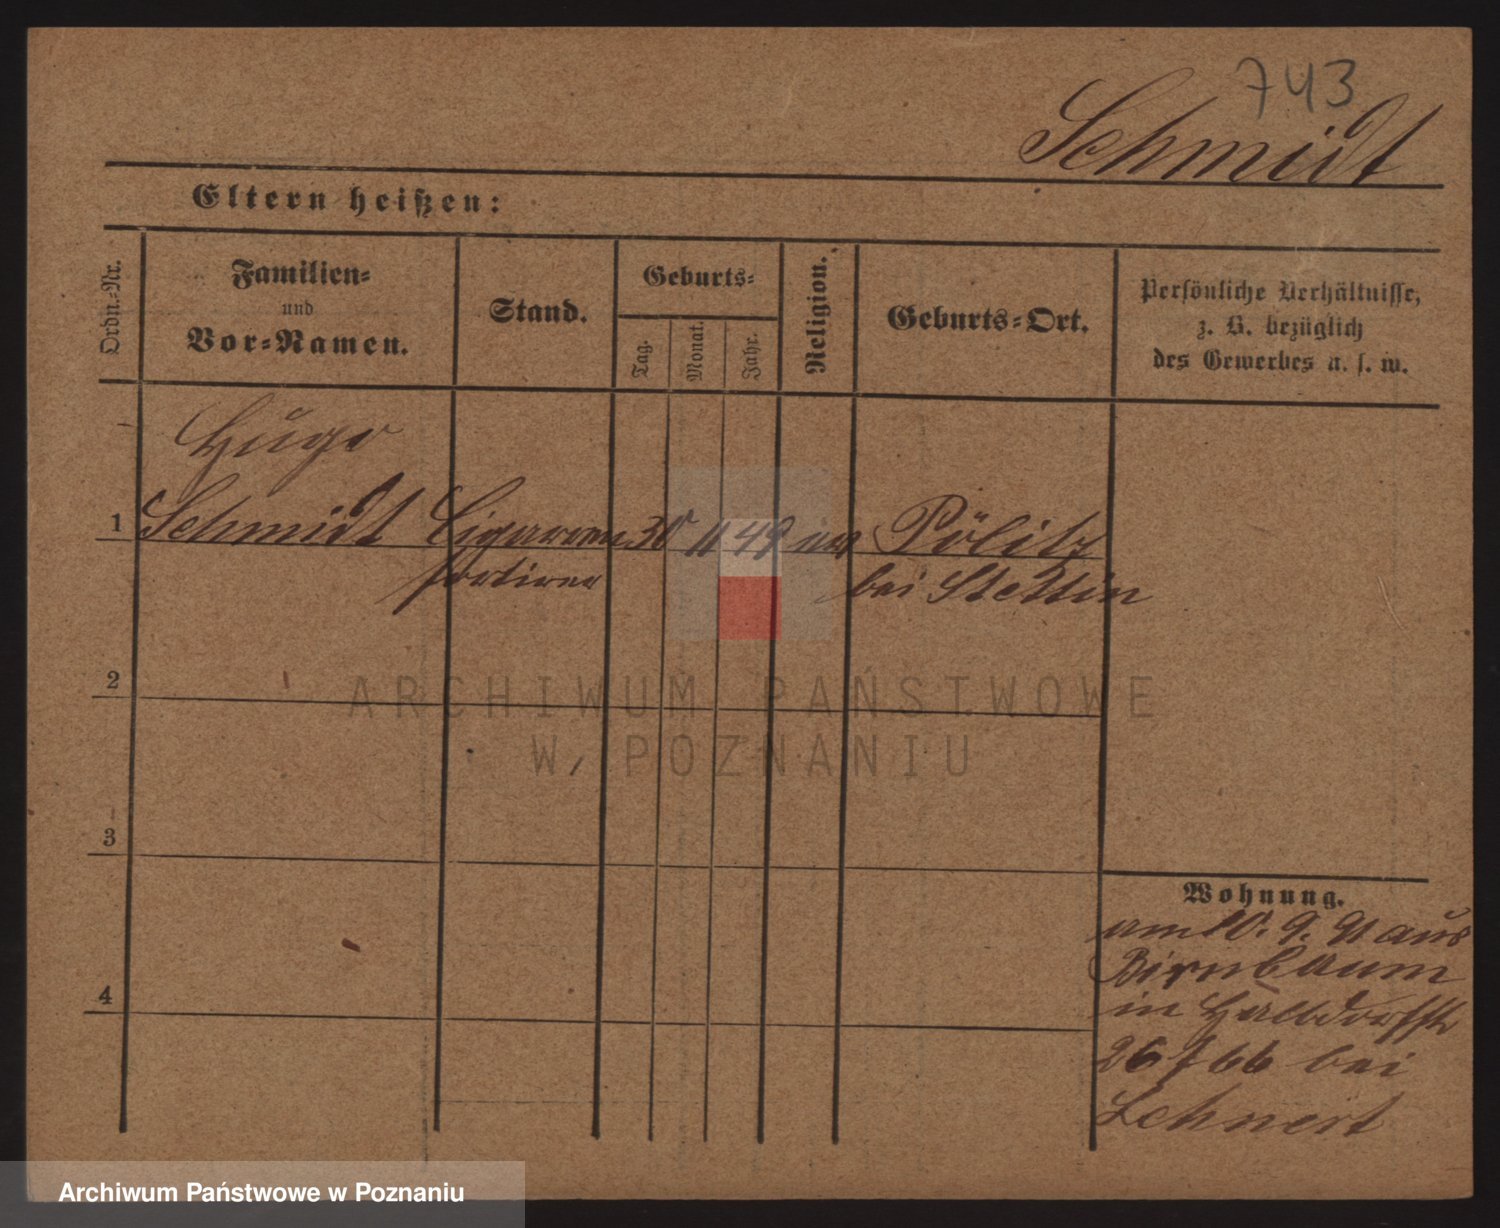 743
Schmidt
Eltern heißen:
Ordn.-Nr.
Familien-
und
Vor-Namen.
Stand.
Geburts-
Tag.
Monat.
Jahr.
Religion.
Geburts-Ort.
Persönliche Verhältnisse,
z. B. bezüglich
des Gewerbes u. s. w.
Hugo
1 Schmidt Cigarren 30 11 49 ev Pölitz
sortirer bei Stettin
2
3
4
Wohnung.
am 10. 9. 91 aus
Birnbaum
in Halbdorfstr
26 / 66 bei
Lehnert
ARCHIWUM PAŃSTWOWE
W POZNANIU
Archiwum Państwowe w Poznaniu